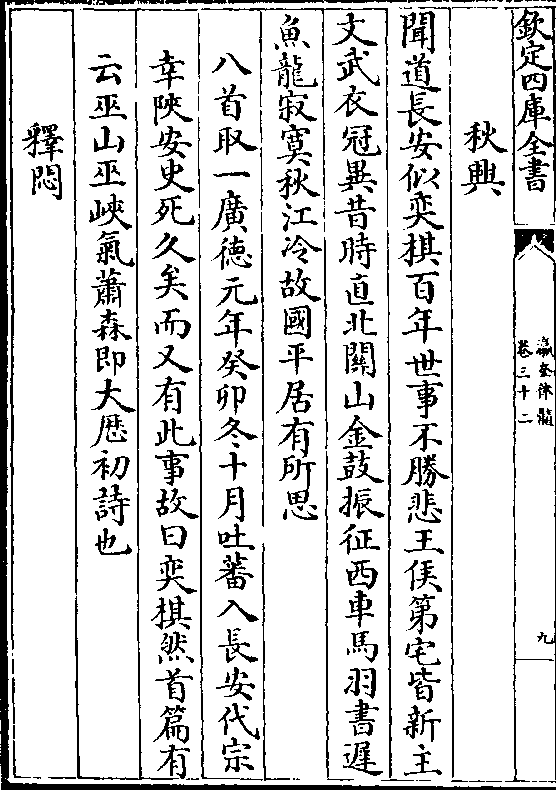 欽定四庫全書
瀛奎律髓
卷三十二
九
秋興
聞道長安似奕棋百年世事不勝悲王侯第宅皆新主
文武衣冠異昔時直北關山金鼓振征西車馬羽書遲
魚龍寂寞秋江冷故國平居有所思
八首取一廣德元年癸卯冬十月吐蕃入長安代宗
幸陜安史死久矣而又有此事故曰奕棋然首篇有
云巫山巫峽氣蕭森即大厯初詩也
釋悶